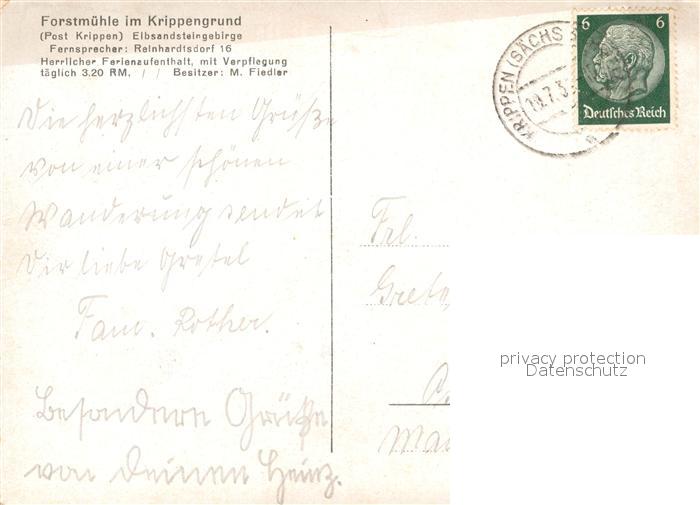 Forstmühle im Krippengrund
(Post Krippen) Elbsandsteingebirge
Fernsprecher: Reinhardtsdorf 16
Herrlicher Ferienaufenthalt, mit Verpflegung
täglich 3.20 RM. / / Besitzer: M. Fiedler
Die herzlichsten Grüße
von einer schönen
Wanderung sendet
Dir liebe Gretel
Fam. Rother.
Besondern Grüße
von Deinem Heinz.
6 6
Deutsches Reich
KRIPPEN (SÄCHS
Frl.
privacy protection
Datenschutz